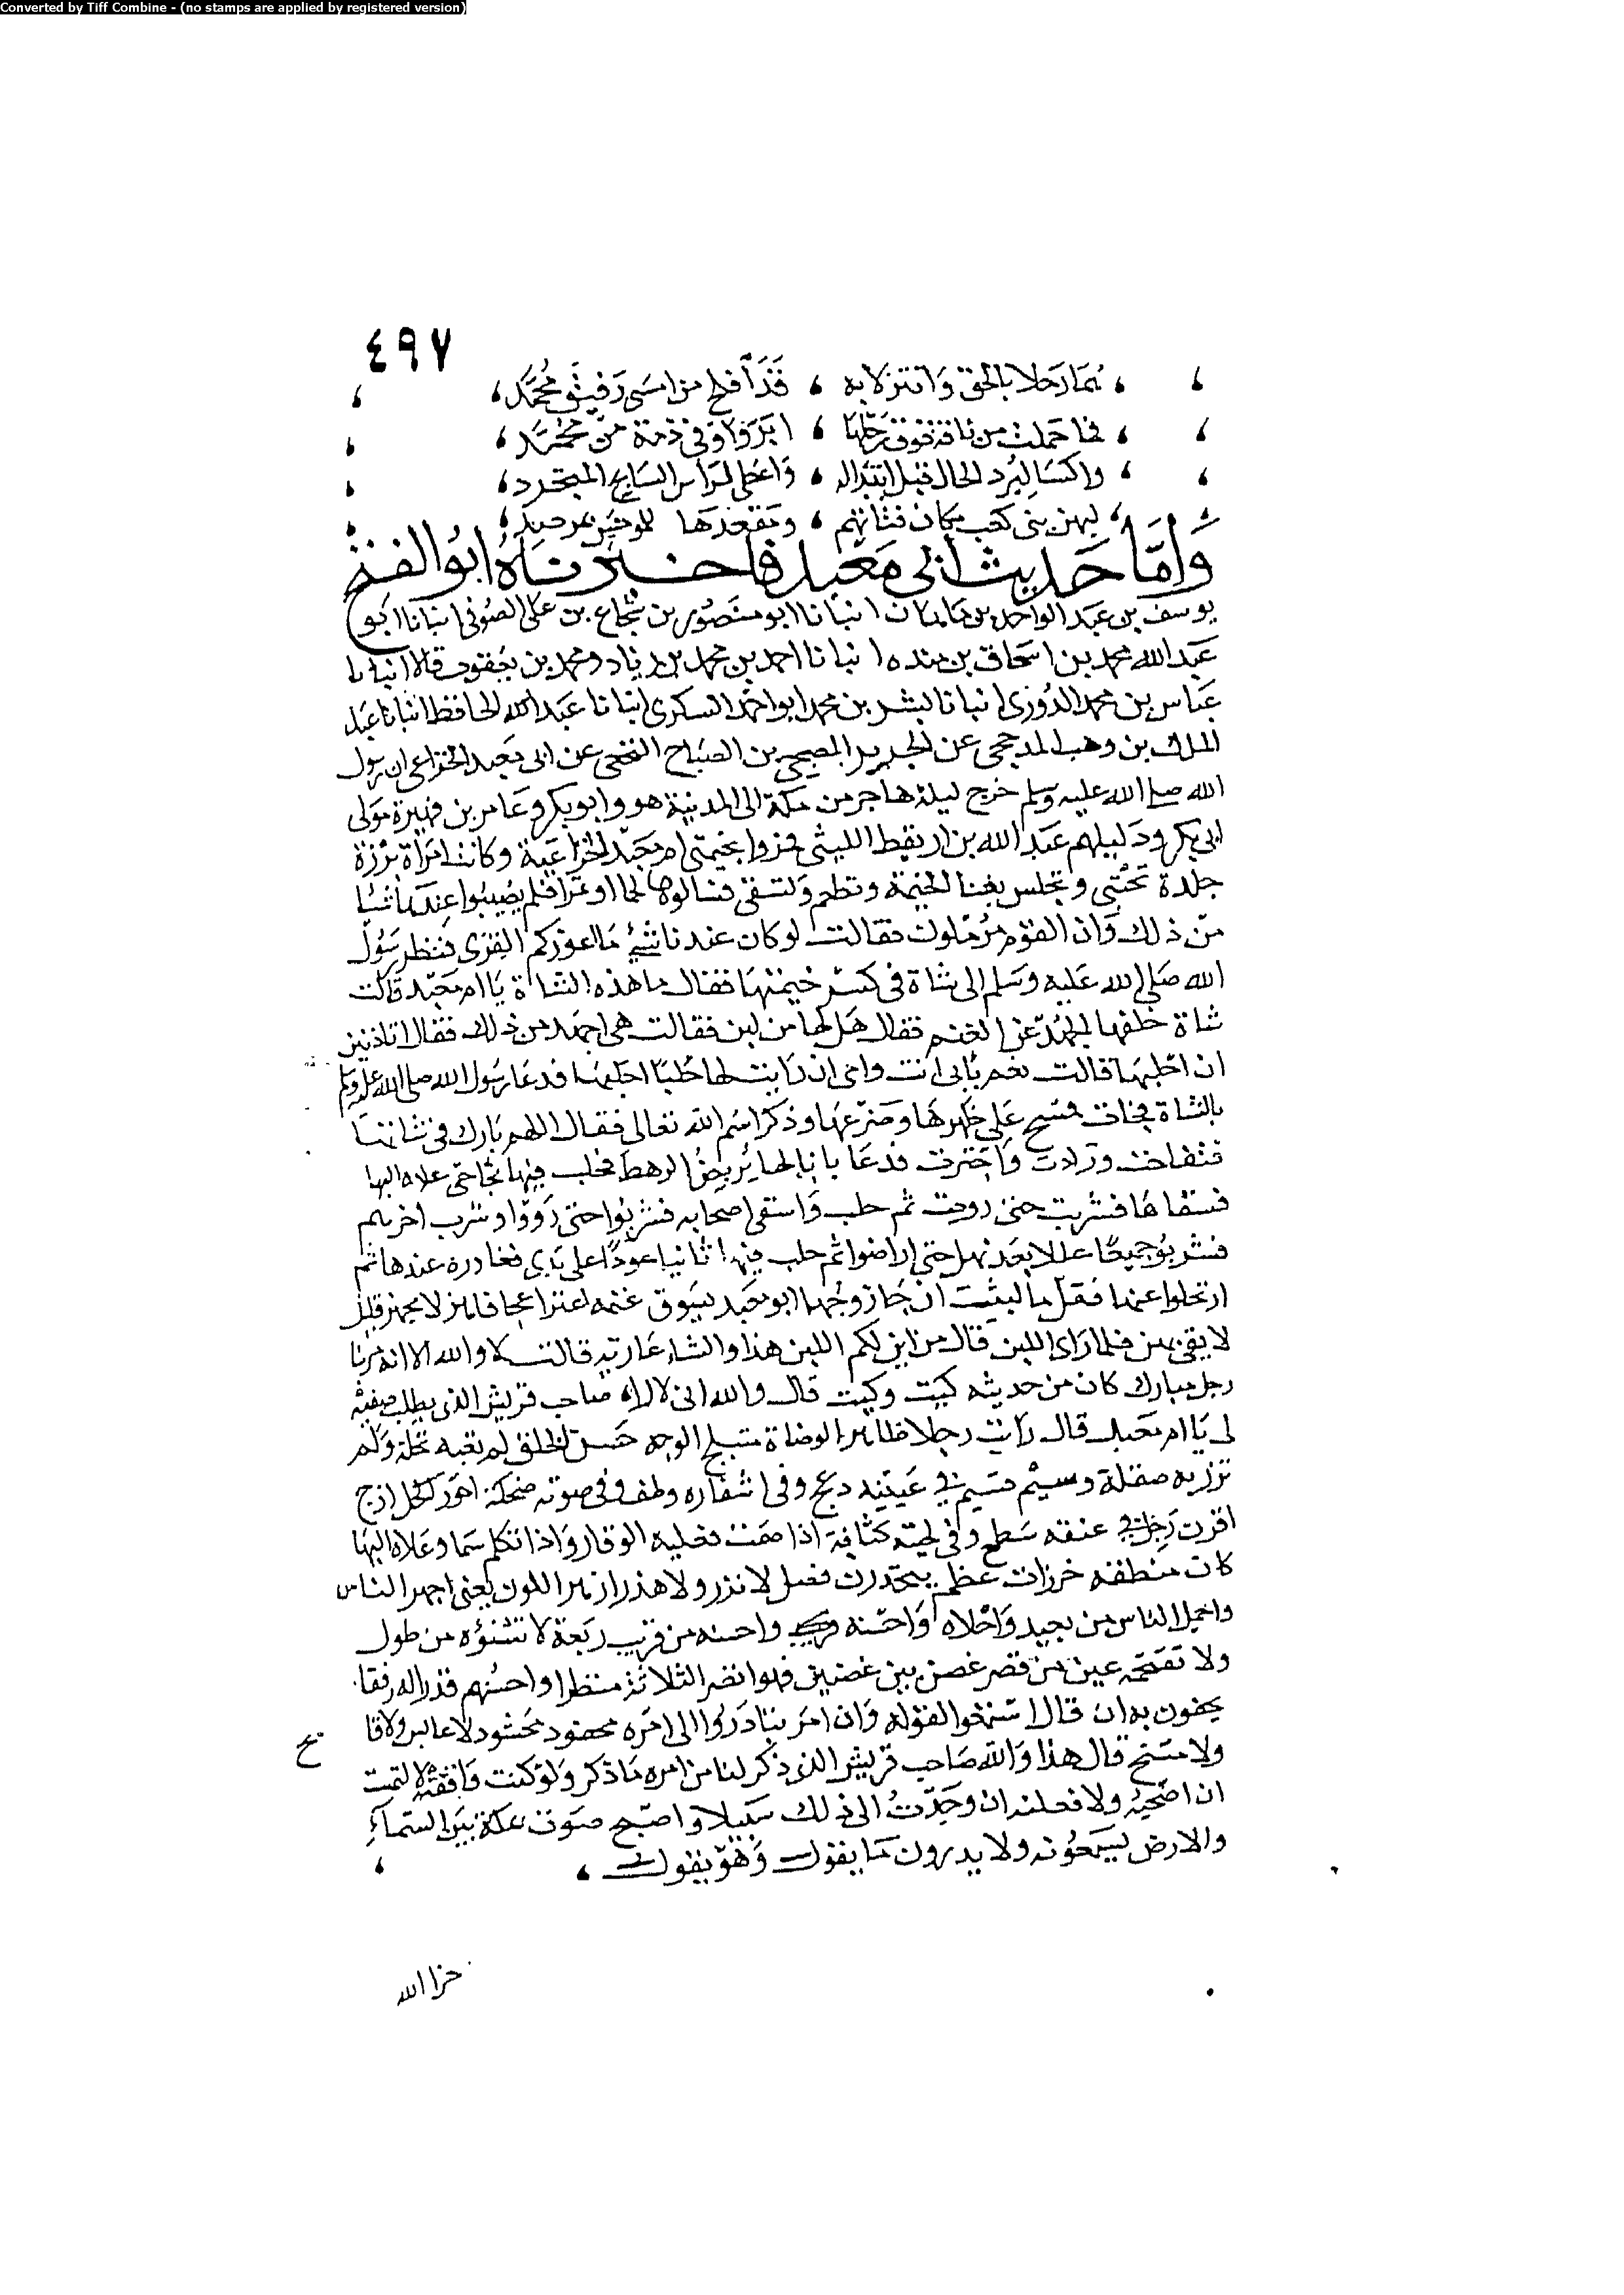 Converted by Tiff Combine - (no stamps are applied by registered version)
٤٩٧
هما رحلا بالحق وانتزلا به ، قد أفلح من امسى رفيق محمد
فما حملت من ناقة فوق رحلها ، ابر واوفى ذمة من محمد
واكسا لبرد الحال قبل ابتذاله ، واعطى لراس السابح المتجرد
ليهن بني كعب مكان فتاتهم ، ومقعدها للمومنين بمرصد
وَاما حديث ابي معبد فاخبرناه ابو الفتح
يوسف بن عبد الواحد بن ماهان انبانا ابو منصور بن شجاع بن علي الصوفي انبانا ابو
عبد الله محمد بن اسحاق بن منده انبانا احمد بن محمد بن زياد ومحمد بن يعقوب قالا انبانا
عباس بن محمد الدوري انبانا بشر بن محمد ابو احمد السكري انبانا عبد الله الحافظ انبانا عبد
الملك بن وهب المدحجي عن الحر بن الصباح النخعي عن ابي معبد الخزاعي ان رسول
الله صلى الله عليه وسلم خرج ليلة هاجر من مكة الى المدينة هو وابو بكر وعامر بن فهيرة مولى
ابي بكر ودليلهم عبد الله بن اريقط الليثي فمروا بخيمتي ام معبد الخزاعية وكانت امراة برزة
جلدة تحتبي وتجلس بفنا الخيمة وتطعم وتسقي فسالوها لحما او تمرا فلم يصيبوا عندها شيا
من ذلك وان القوم مرملون فقالت لو كان عندنا شيء ما اعوزكم القرى فنظر رسول
الله صلى الله عليه وسلم الى شاة في كسر خيمتها فقال ما هذه الشاة يا ام معبد قالت
شاة خلفها الجهد عن الغنم فقال هل لها من لبن فقالت هي اجهد من ذلك فقال اتاذنين
ان احلبها قالت نعم بابي انت وامي ان رايت لها حلبا احلبها فدعا رسول الله صلى الله عليه وسلم
بالشاة فمسح على ظهرها وضرعها وذكر اسم الله تعالى فقال اللهم بارك في شاتها
فتفاحت ودرت واجترت فدعا باناء لها يربض الرهط فحلب فيها ثجا حتى علاه البها
فسقاها فشربت حتى رويت ثم حلب واسقى اصحابه فشربوا حتى رووا وشرب اخرهم
فشربوا جميعا عللا بعد نهل حتى اراضوا ثم حلب فيها ثانيا عودا على بدي فغادره عندها ثم
ارتحلوا عنها فقل ما لبثت ان جا زوجها ابو معبد يسوق غنمه اعنزا عجافا هزلا مخهن قليل
لا يقي بهن فلما راى اللبن قال من اين لكم اللبن هذا والشاء عازبة قالت لا والله الا انه مر بنا
رجل مبارك كان من حديثه كيت وكيت قال والله اني لاراه صاحب قريش الذي يطلب صفيه
لي يا ام معبد قال رايت رجلا ظاهر الوضاة متبلج الوجه حسن الخلق لم تعبه ثجلة ولم
تزر به صقلة وسيم قسيم في عينيه دعج وفي اشفاره وطف وفي صوته احور اكحل ازج
اقرن رجل في عنقه سطع وفي لحيته كثافة اذا صمت فعليه الوقار واذا تكلم سما وعلاه البها
كان منطقه خرزات عظم يتحدرن فصل لا نزر ولا هذر ازهر اللون يعني اجهر الناس
واجمل الناس من بعيد واحلاه واحسنه واحسنه من قريب ربعة لا تشنؤه من طول
ولا تقتحمه عين من قصر غصن بين غصنين فهو انضر الثلاثة منظرا واحسنهم قدرا له رفقا
يحفون به ان قال استمعوا لقوله وان امر تبادروا الى امره محفود محشود لا عابس ولا قا
ولا قال هذا والله صاحب قريش الذي ذكر لنا من امره ما ذكر ولو كنت وافقته لالتمست
ان اصحبه ولافعلن ان وجدت الى ذلك سبيلا واصبح صوت بمكة بين السماء
والارض يسمعونه ولا يدرون من يقول وهو يقول
جزا الله